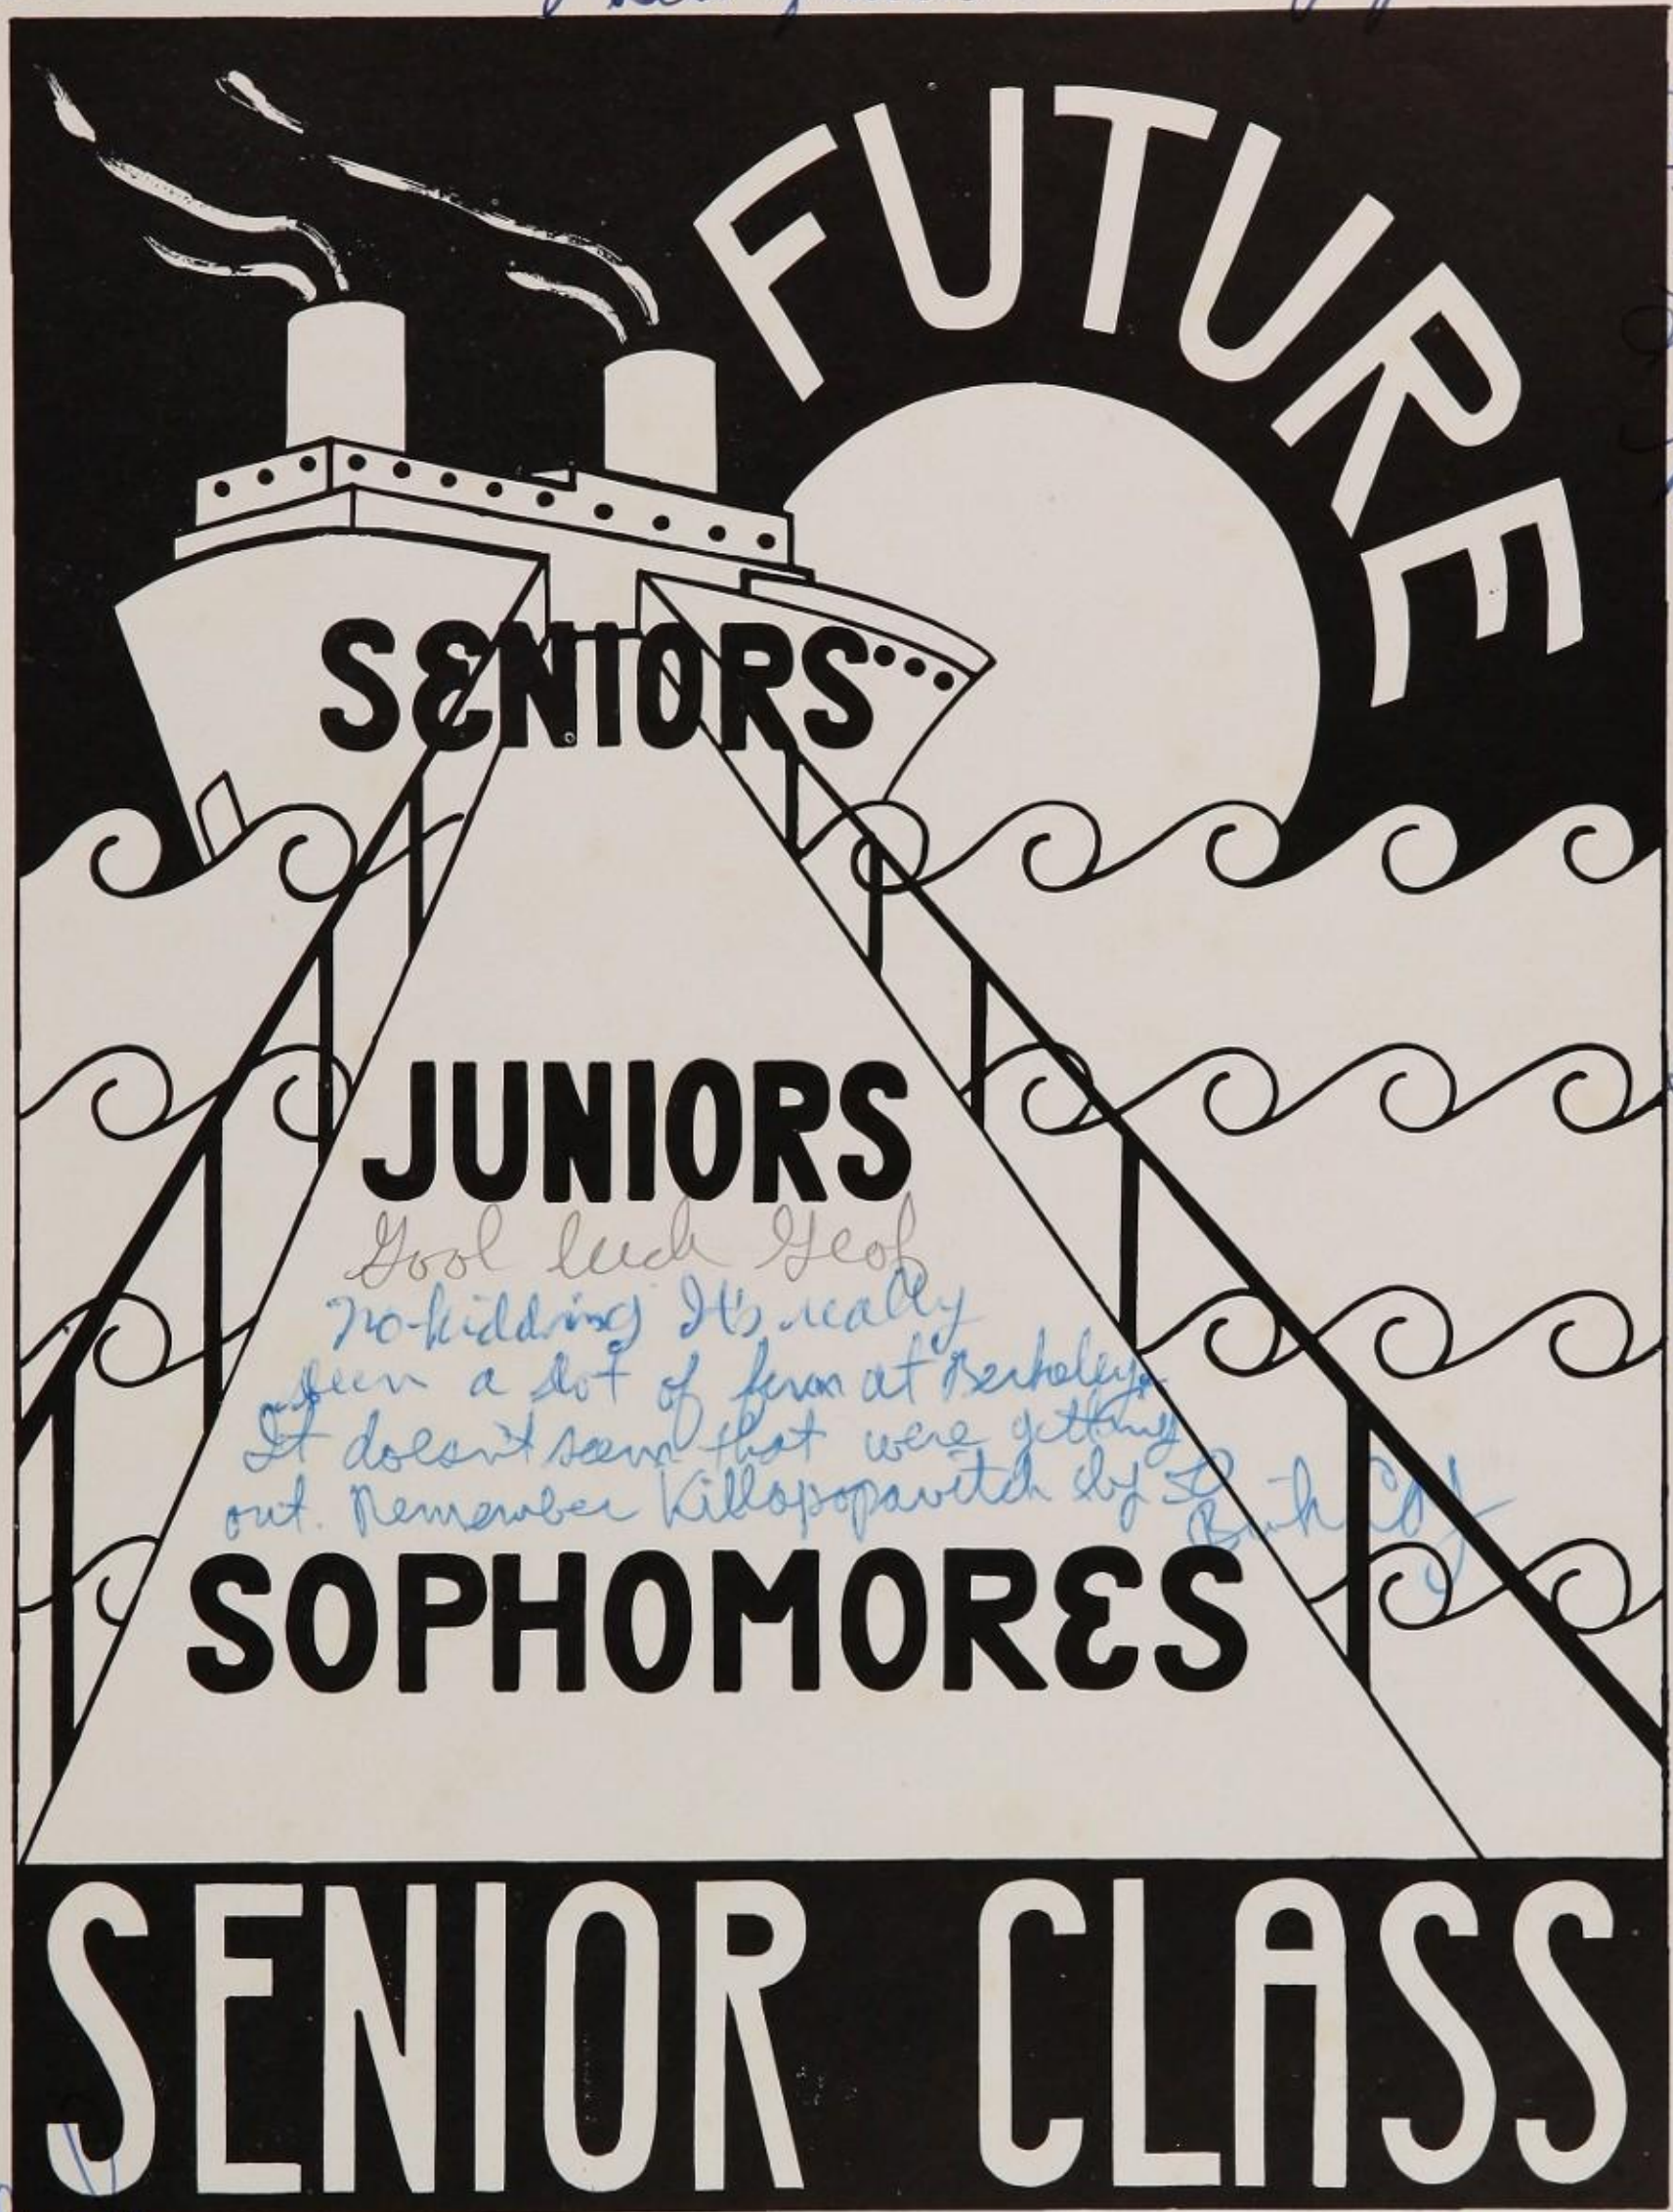 FUTURE
SENIORS
JUNIORS
Gool luck Geof
No-kidding It's really
been a lot of fun at Berkeley.
It doesn't seem that were getting
out. Remember Killapopavitch by
SOPHOMORES
SENIOR CLASS